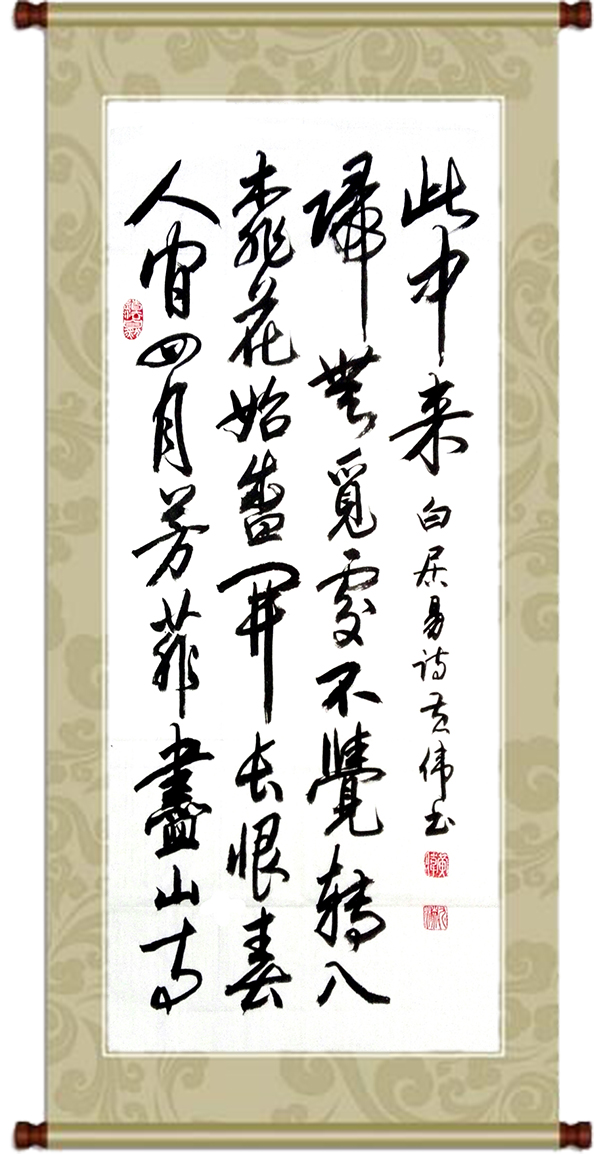 人間四月芳菲盡山寺
桃花始盛開長恨春
歸無覓處不覺轉入
此中来 白居易诗 黄伟书